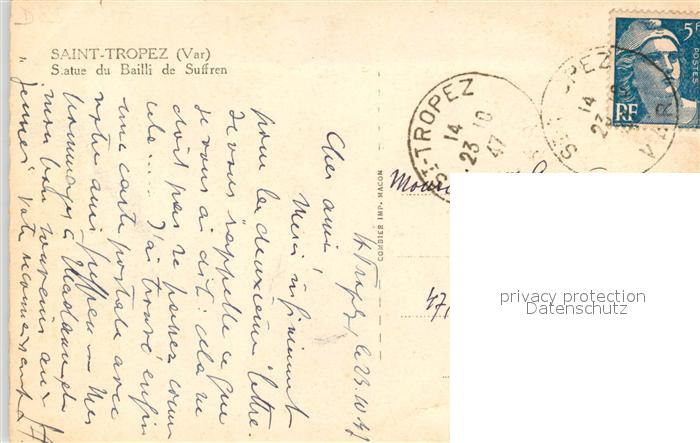 SAINT-TROPEZ (Var)
Statue du Bailli de Suffren
St Tropez, le 23.10.47
Cher ami,
Merci infiniment
pour la deuxième lettre.
Je vous rappelle ce que
je vous ai dit : cela ne
doit pas se passer comme
cela..... J'ai trouvé enfin
une carte postale avec
votre ami Suffren. Mes
hommages à Madame,
mon bon souvenir aux
"jeunes", votre reconnaissant
COMBIER IMP. MACON
ST-TROPEZ
14
23 10
47
ST-TROPEZ
14
23
VAR
5F
POSTES
RF
47,
privacy protection
Datenschutz